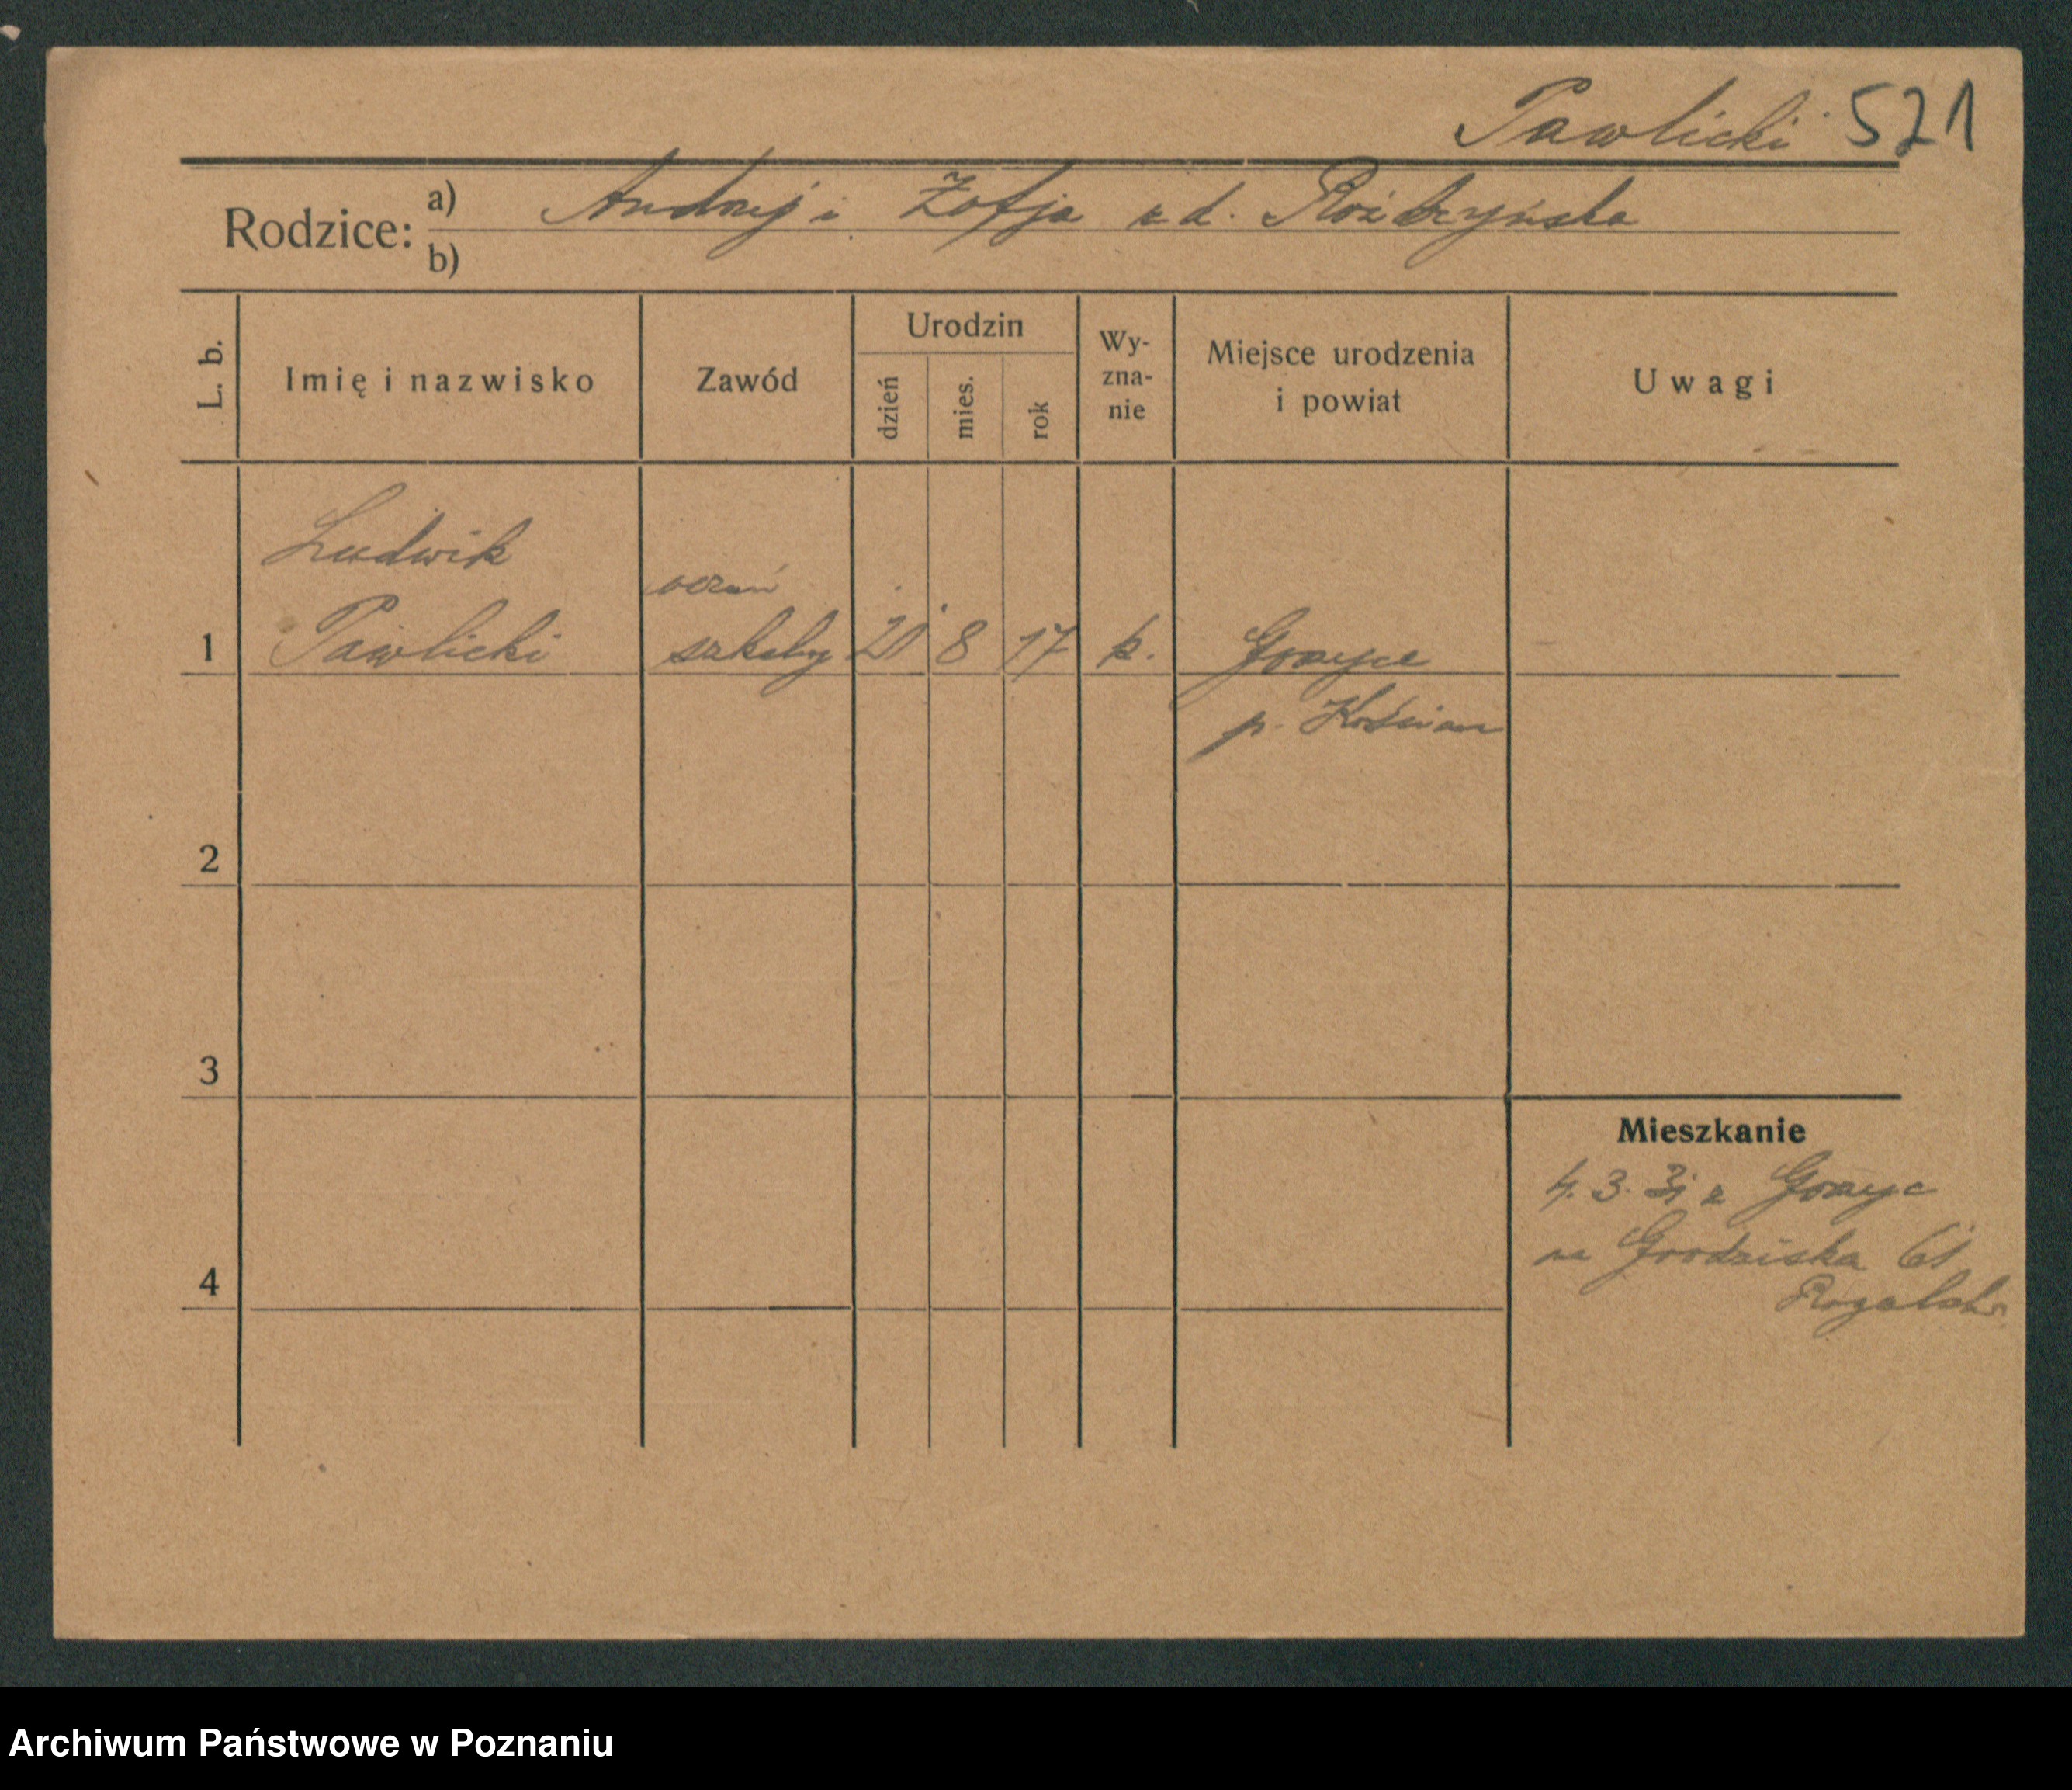 Pawlicki 521
Rodzice: a) Andrzej i Zofja z d.
b)
L. b.
Imię i nazwisko
Zawód
Urodzin
dzień
mies.
rok
Wy-
zna-
nie
Miejsce urodzenia
i powiat
Uwagi
Ludwik
uczeń
1 Pawlicki szkolny 20 8 17 k. Gorzyce
p. Kościan
2
3
4
Mieszkanie
4. 3. 31 z Gorzyc
na Grodziska 61